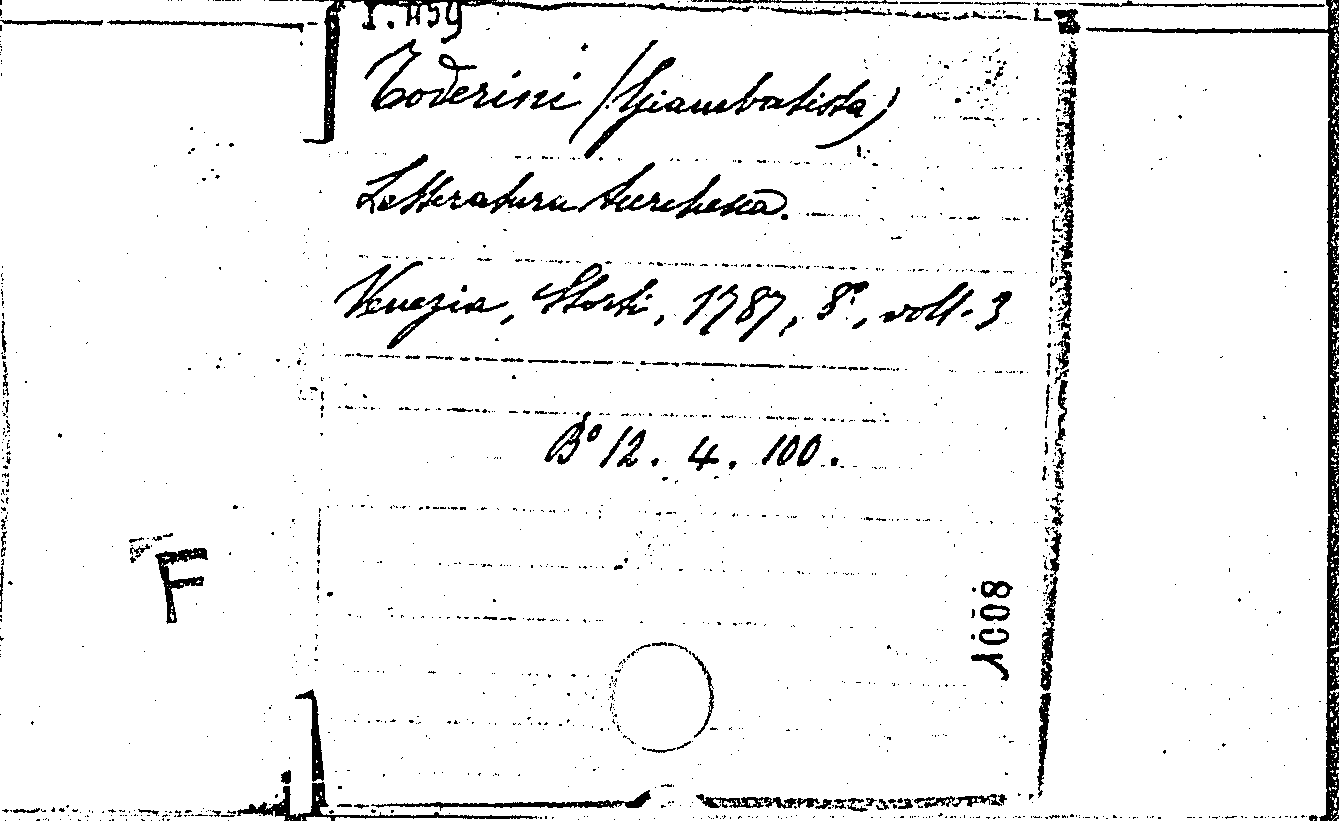 Toderini (Giambatista)
Letteratura turchesca.
Venezia, Storti, 1787, 8°, voll. 3
B° 12. 4. 100.
F
1008